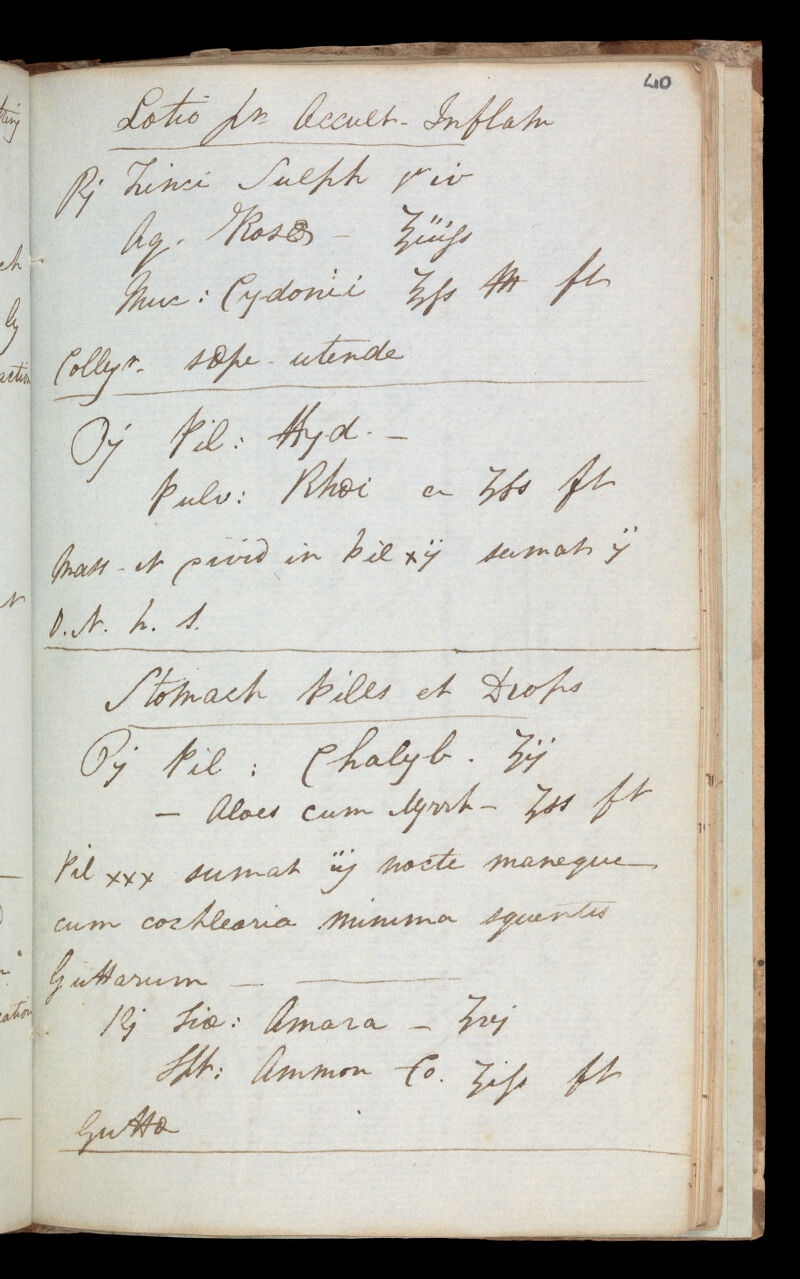 40
Lotio pr Occul- Inflam
℞ Zinci Sulph gr iv
Aq. Rosæ – ℥iijſs
Muc: Cydonii ℥ſs M ft
Collyr. sæpe utende
℞ Pil: Hyd. –
Pulv: Rhæi a ʒſs ft
Mass - et divid in Pil xij sumat ij
O. N. h. s.
Stomach Pills et Drops
℞ Pil: Chalyb. ʒij
– Aloes cum Myrrh – ʒss ft
Pil xxx sumat iij nocte maneque
cum cochlearia minima squentis
Guttarum –
℞ Tiæ: Amara – ʒvj
Spt: Ammon Co. ʒiſs ft
Guttæ